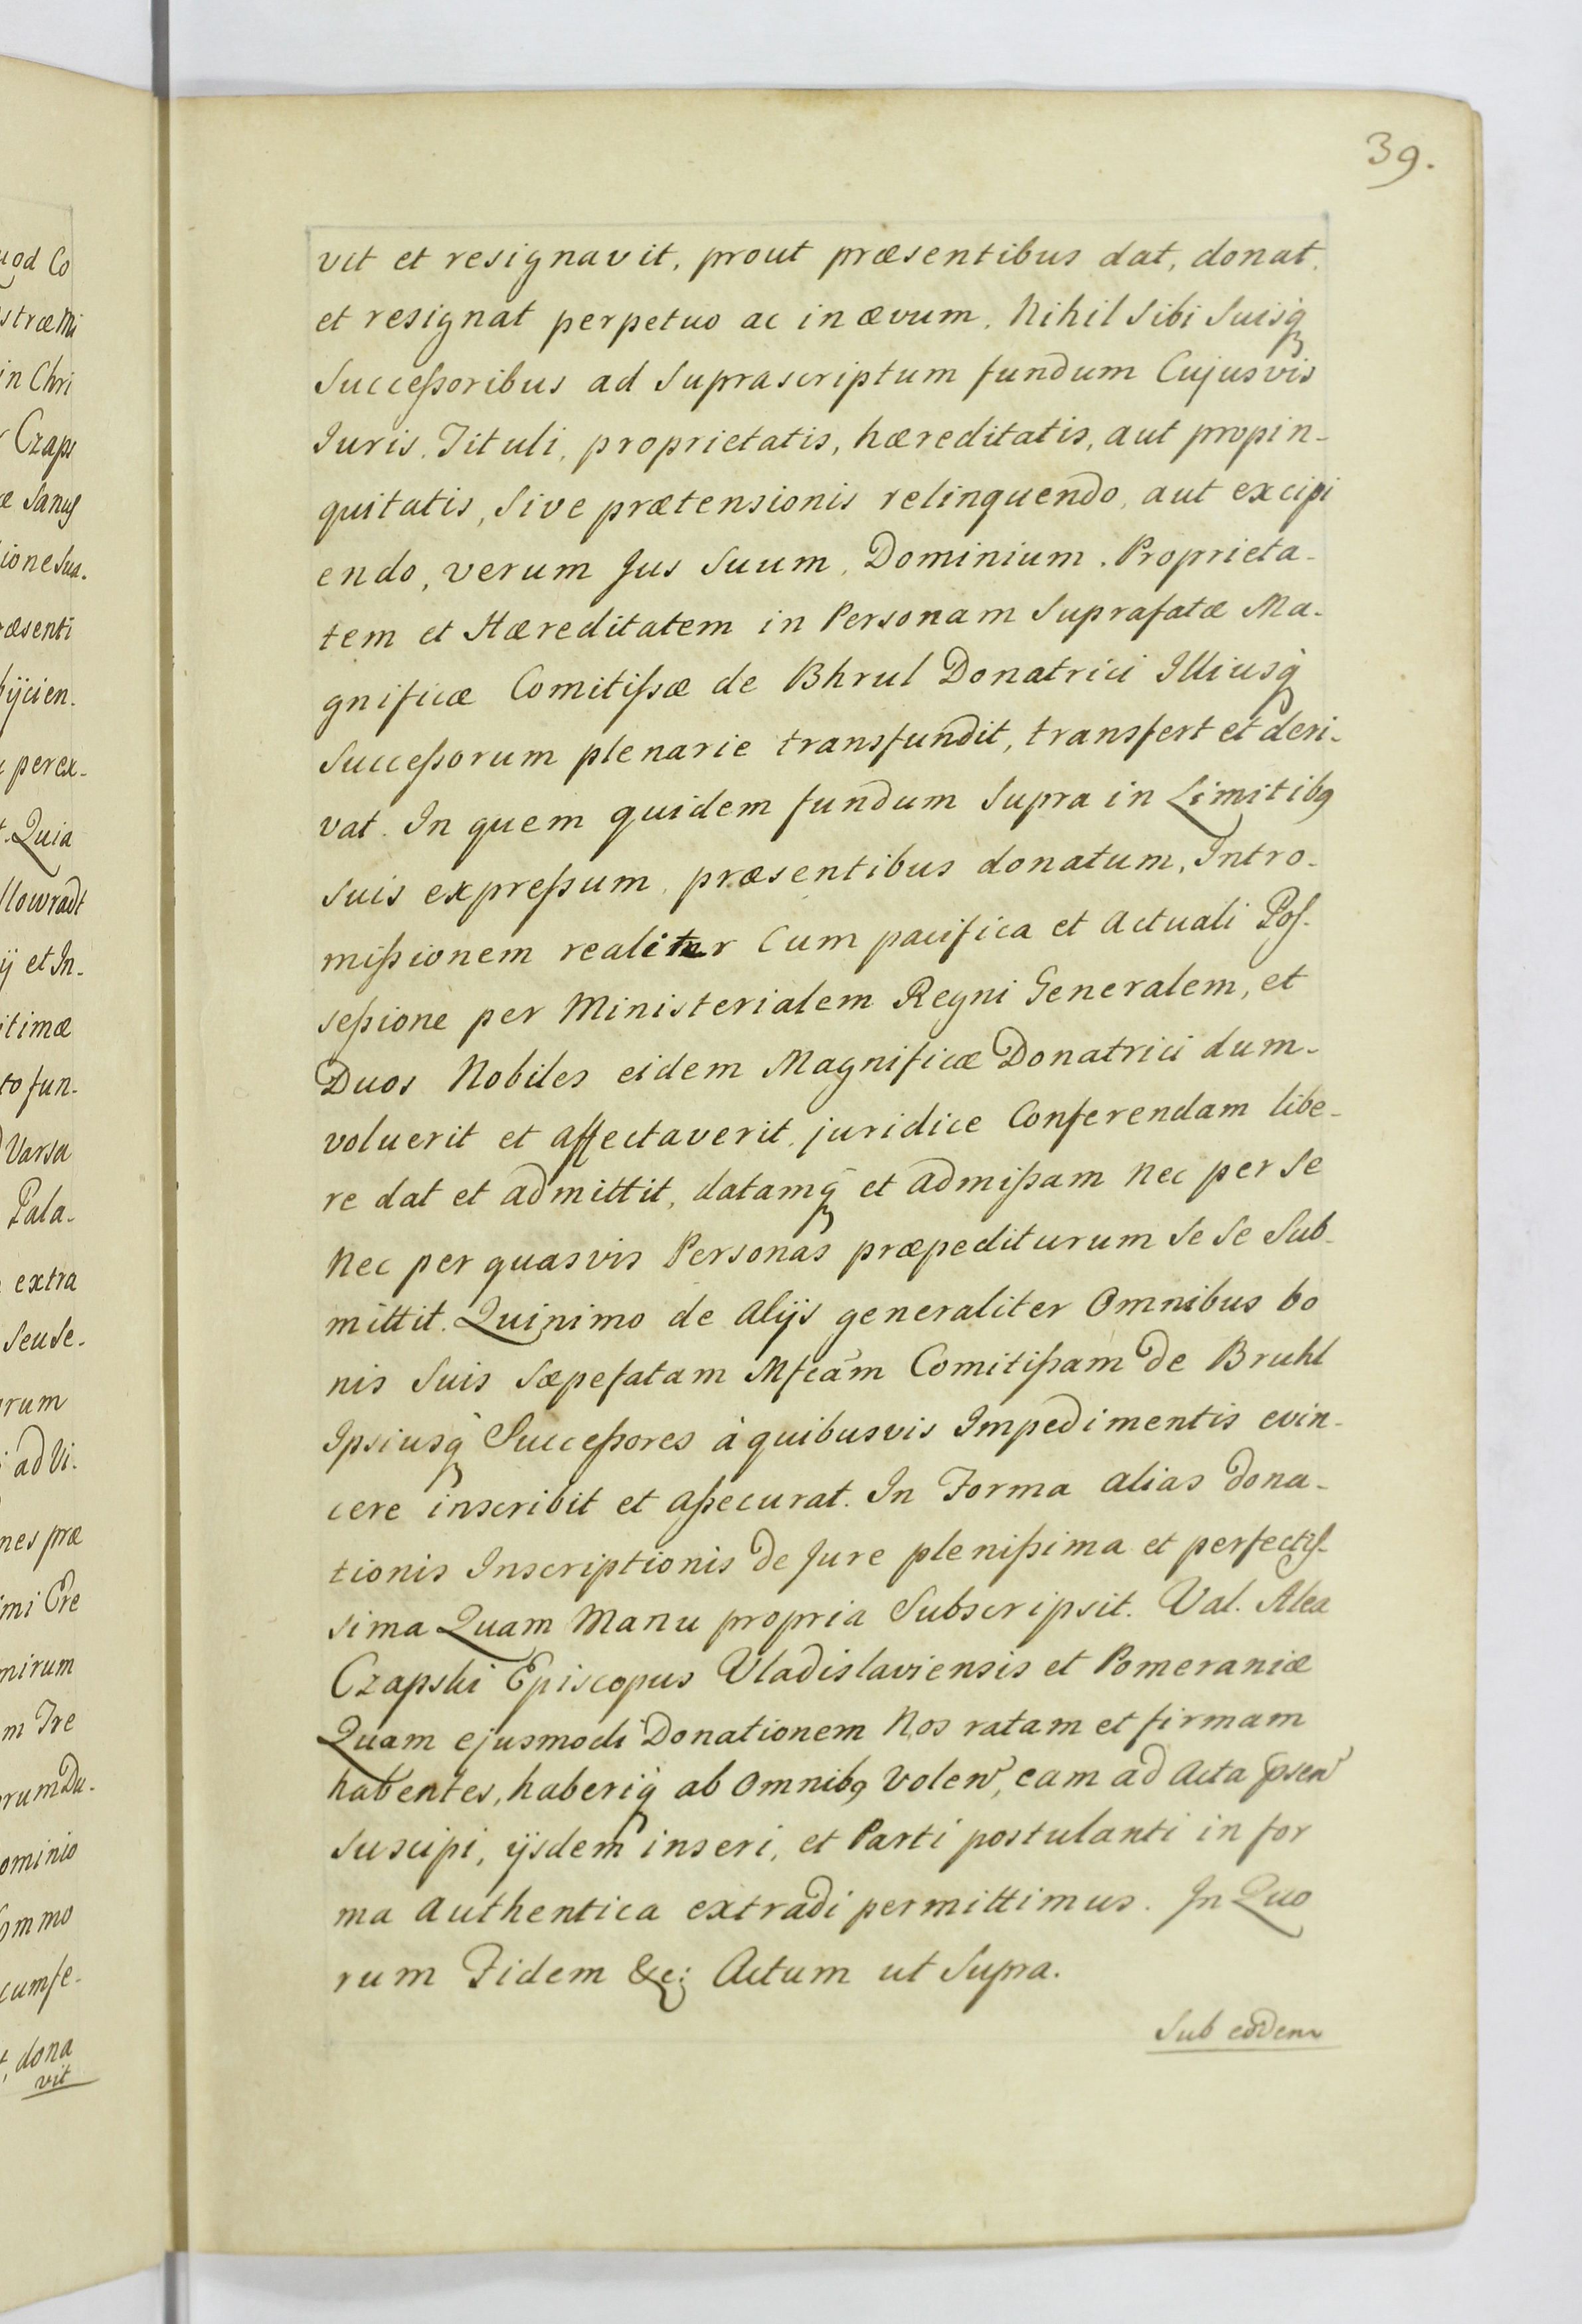 39.
vit et resignavit, prout præsentibus dat, donat,
et resignat perpetuo ac in ævum. Nihil Sibi Suisq̃
Succeßoribus ad Suprascriptum fundum Cujusvis
Iuris, Tituli, proprietatis, hæreditatis, aut propin-
quitatis, Sive prætensionis relinquendo, aut excipi
endo, verum Jus Suum, Dominium, Proprieta-
tem et Hæreditatem in Personam Suprafatæ Ma-
gnificæ Comitißæ de Bhrul Donatrici Illiusq̃
Succeßorum plenarie transfundit, transfert et deri-
vat. In quem quidem fundum Supra in Limitibꝯ
Suis expreßum, præsentibus donatum, Intro-
mißionem realiter Cum pacifica et actuali Pos-
seßione per Ministerialem Regni Generalem, et
Duos Nobiles eidem Magnificæ Donatrici dum-
voluerit et affectaverit, juridice Conferendam libe-
re dat et admittit, datamq̃ et admißam nec per Se
nec per quasvis Personas præpediturum Se Se Sub-
mittit. Quinimo de alijs generaliter Omnibus bo
nis Suis Sæpefatam Mfcãm Comitißam de Bruhl
Ipsiusq̃ Succeßores à quibusvis Impedimentis evin-
cere inscribit et aßecurat. In Forma alias dona-
tionis Inscriptionis de Jure plenißima et perfectis-
sima Quam Manu propria Subscripsit. Val. Alea
Czapski Episcopus Vladislaviensis et Pomeraniæ
Quam ejusmodi Donationem Nos ratam et firmam
habentes, haberiq̃ ab Omnibꝯ Volen̄, eam ad Acta p̄sen̄
Suscipi, ijsdem inseri, et Parti postulanti in for
ma authentica extradi permittimus. In Quo
rum Fidem &c: Actum ut Supra.
Sub eodem
uod Co
stræ Mi
in Chri
Czaps
ione Sua.
æsenti
ijcien.
perex-
Quia
llowradt
ij et In-
itimæ
to fun-
Varsa
Pala-
extra
Seu Se-
rum
ad Vi-
nes præ
imi Ere
mirum
m Tre
rum Du-
ominio
ommo
cumfe-
dona
vit